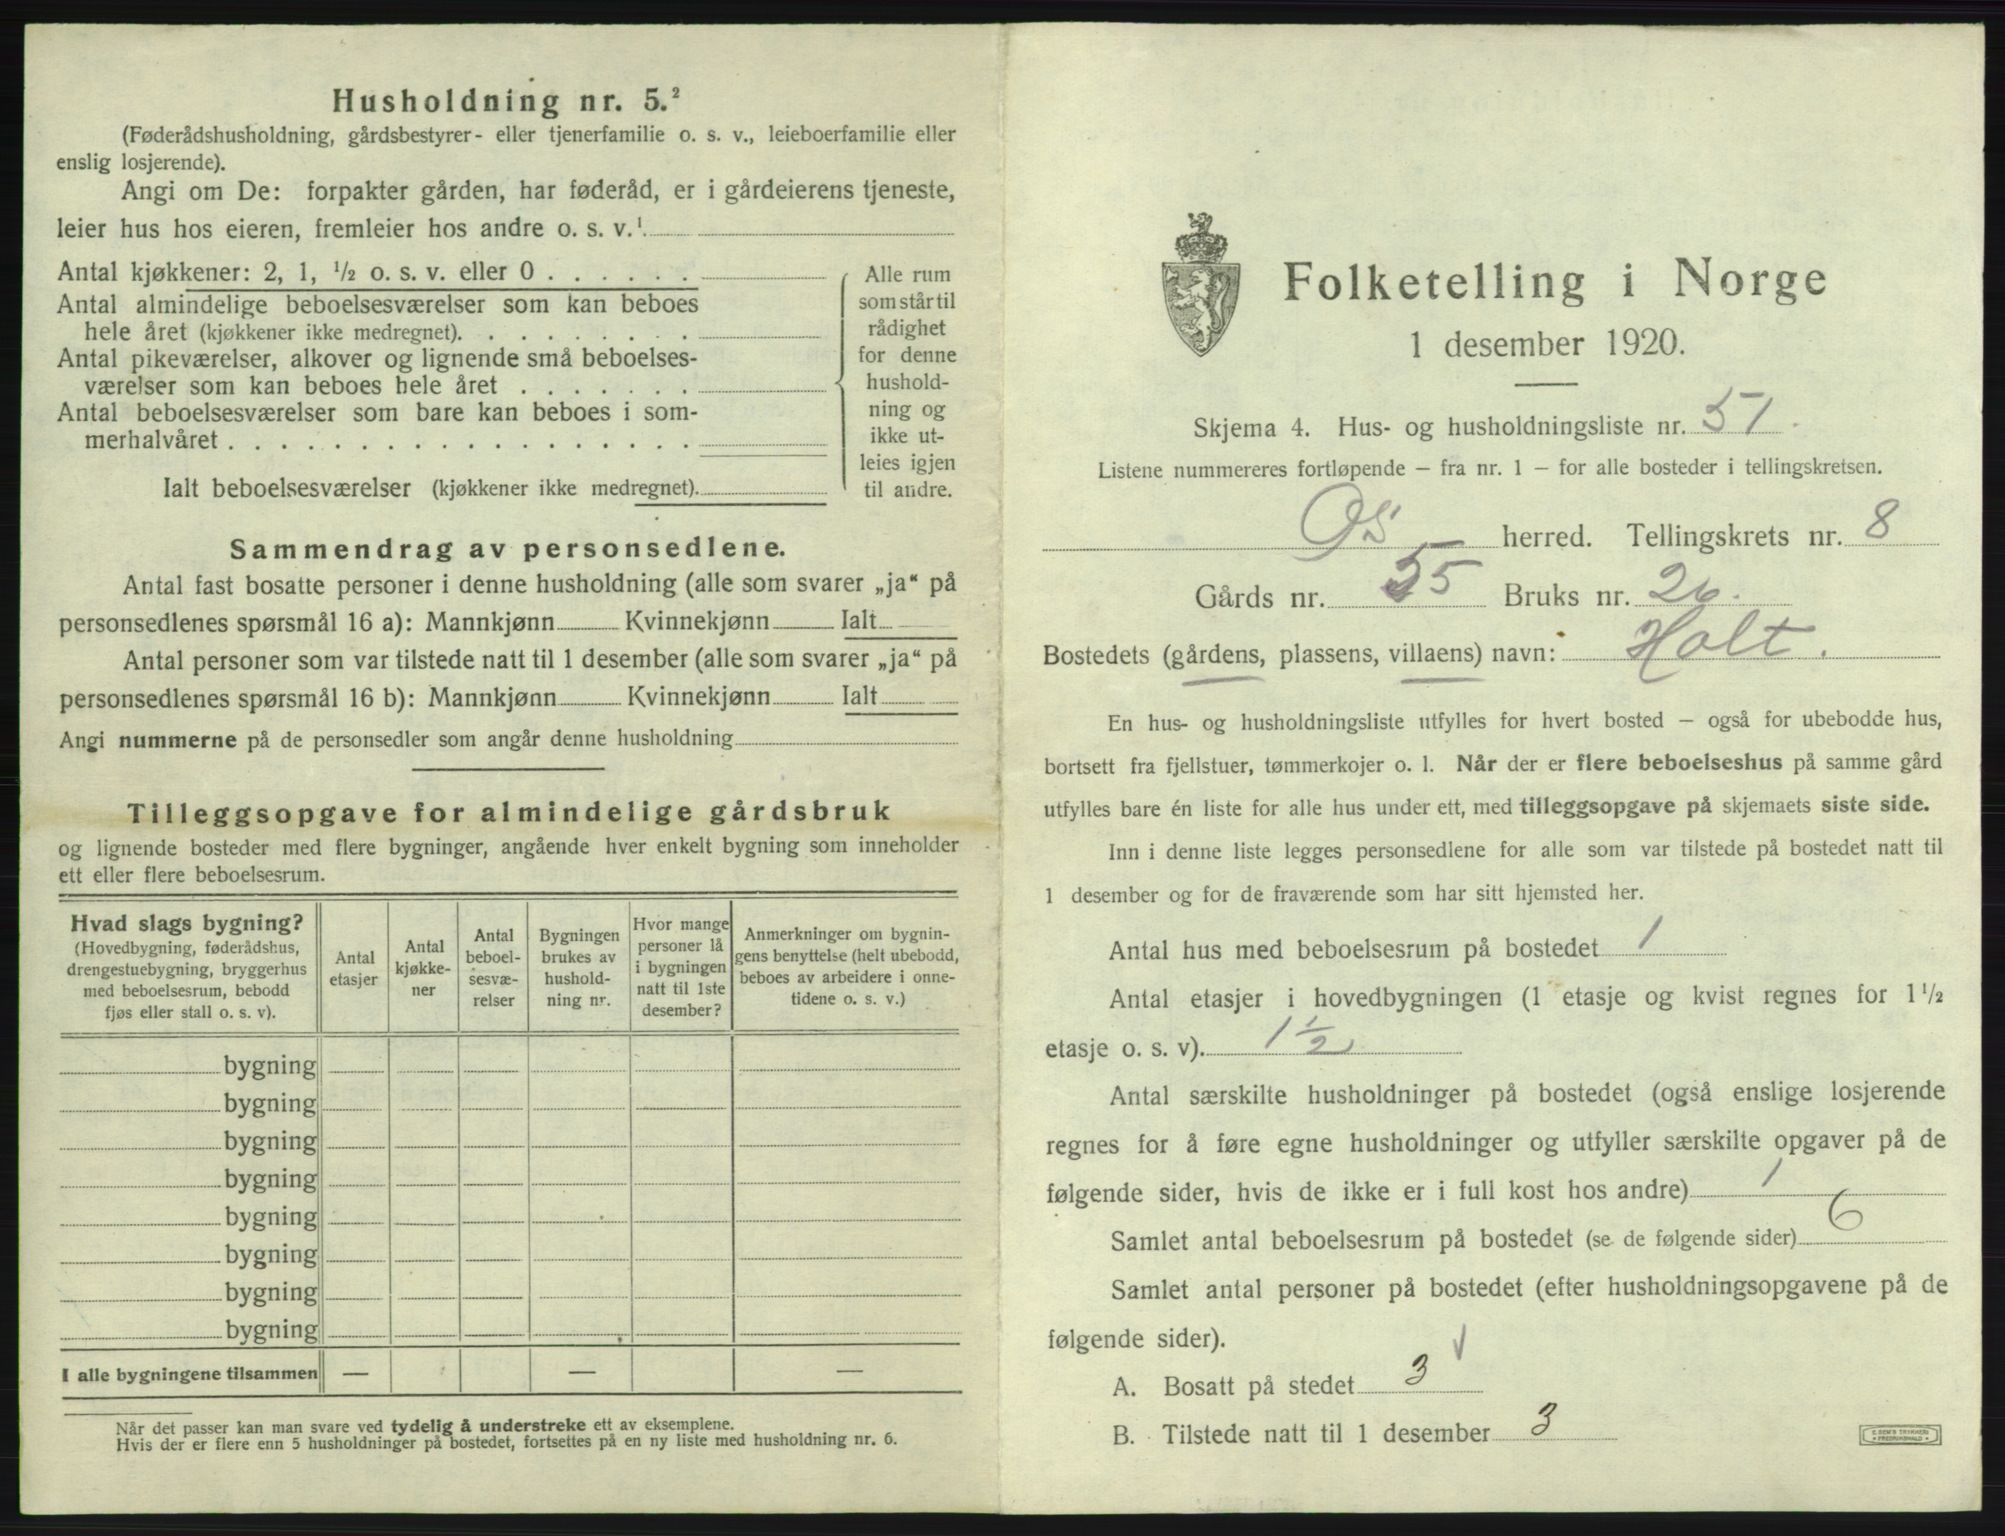 Husholdning nr. 5.²
(Føderådshusholdning, gårdsbestyrer- eller tjenerfamilie o. s. v., leieboerfamilie eller
enslig losjerende).
Angi om De: forpakter gården, har føderåd, er i gårdeierens tjeneste,
leier hus hos eieren, fremleier hos andre o. s. v.¹
Antal kjøkkener: 2, 1, ½ o. s. v. eller 0 . . . . . .
Antal almindelige beboelsesværelser som kan beboes
hele året (kjøkkener ikke medregnet). . . . . . . . .
Antal pikeværelser, alkover og lignende små beboelses-
værelser som kan beboes hele året . . . . . . .
Antal beboelsesværelser som bare kan beboes i som-
merhalvåret . . . . . . . . . . . . . . . . . .
Ialt beboelsesværelser (kjøkkener ikke medregnet).
Alle rum
som står til
rådighet
for denne
hushold-
ning og
ikke ut-
leies igjen
til andre.
Sammendrag av personsedlene.
Antal fast bosatte personer i denne husholdning (alle som svarer „ja“ på
personsedlenes spørsmål 16 a): Mannkjønn Kvinnekjønn Ialt
Antal personer som var tilstede natt til 1 desember (alle som svarer „ja“ på
personsedlenes spørsmål 16 b): Mannkjønn Kvinnekjønn Ialt
Angi nummerne på de personsedler som angår denne husholdning
Tilleggsopgave for almindelige gårdsbruk
og lignende bosteder med flere bygninger, angående hver enkelt bygning som inneholder
ett eller flere beboelsesrum.
Hvad slags bygning?
(Hovedbygning, føderådshus,
drengestuebygning, bryggerhus
med beboelsesrum, bebodd
fjøs eller stall o. s. v).
Antal
etasjer
Antal
kjøkke-
ner
Antal
beboel-
sesvæ-
relser
Bygningen
brukes av
hushold-
ning nr.
Hvor mange
personer lå
i bygningen
natt til 1ste
desember?
Anmerkninger om bygnin-
gens benyttelse (helt ubebodd,
beboes av arbeidere i onne-
tidene o. s. v.)
bygning
bygning
bygning
bygning
bygning
bygning
bygning
bygning
I alle bygningene tilsammen — — —
Når det passer kan man svare ved tydelig å understreke ett av eksemplene.
Hvis der er flere enn 5 husholdninger på bostedet, fortsettes på en ny liste med husholdning nr. 6.
Folketelling i Norge
1 desember 1920.
Skjema 4. Hus- og husholdningsliste nr. 51.
Listene nummereres fortløpende — fra nr. 1 — for alle bosteder i tellingskretsen.
Os herred. Tellingskrets nr. 8
Gårds nr. 55 Bruks nr. 26.
Bostedets (gårdens, plassens, villaens) navn: Holt.
En hus- og husholdningsliste utfylles for hvert bosted — også for ubebodde hus,
bortsett fra fjellstuer, tømmerkojer o. l. Når der er flere beboelseshus på samme gård
utfylles bare én liste for alle hus under ett, med tilleggsopgave på skjemaets siste side.
Inn i denne liste legges personsedlene for alle som var tilstede på bostedet natt til
1 desember og for de fraværende som har sitt hjemsted her.
Antal hus med beboelsesrum på bostedet 1
Antal etasjer i hovedbygningen (1 etasje og kvist regnes for 1½
etasje o. s. v). 1½
Antal særskilte husholdninger på bostedet (også enslige losjerende
regnes for å føre egne husholdninger og utfyller særskilte opgaver på de
følgende sider, hvis de ikke er i full kost hos andre) 1
Samlet antal beboelsesrum på bostedet (se de følgende sider) 6
Samlet antal personer på bostedet (efter husholdningsopgavene på de
følgende sider).
A. Bosatt på stedet 3
B. Tilstede natt til 1 desember 3